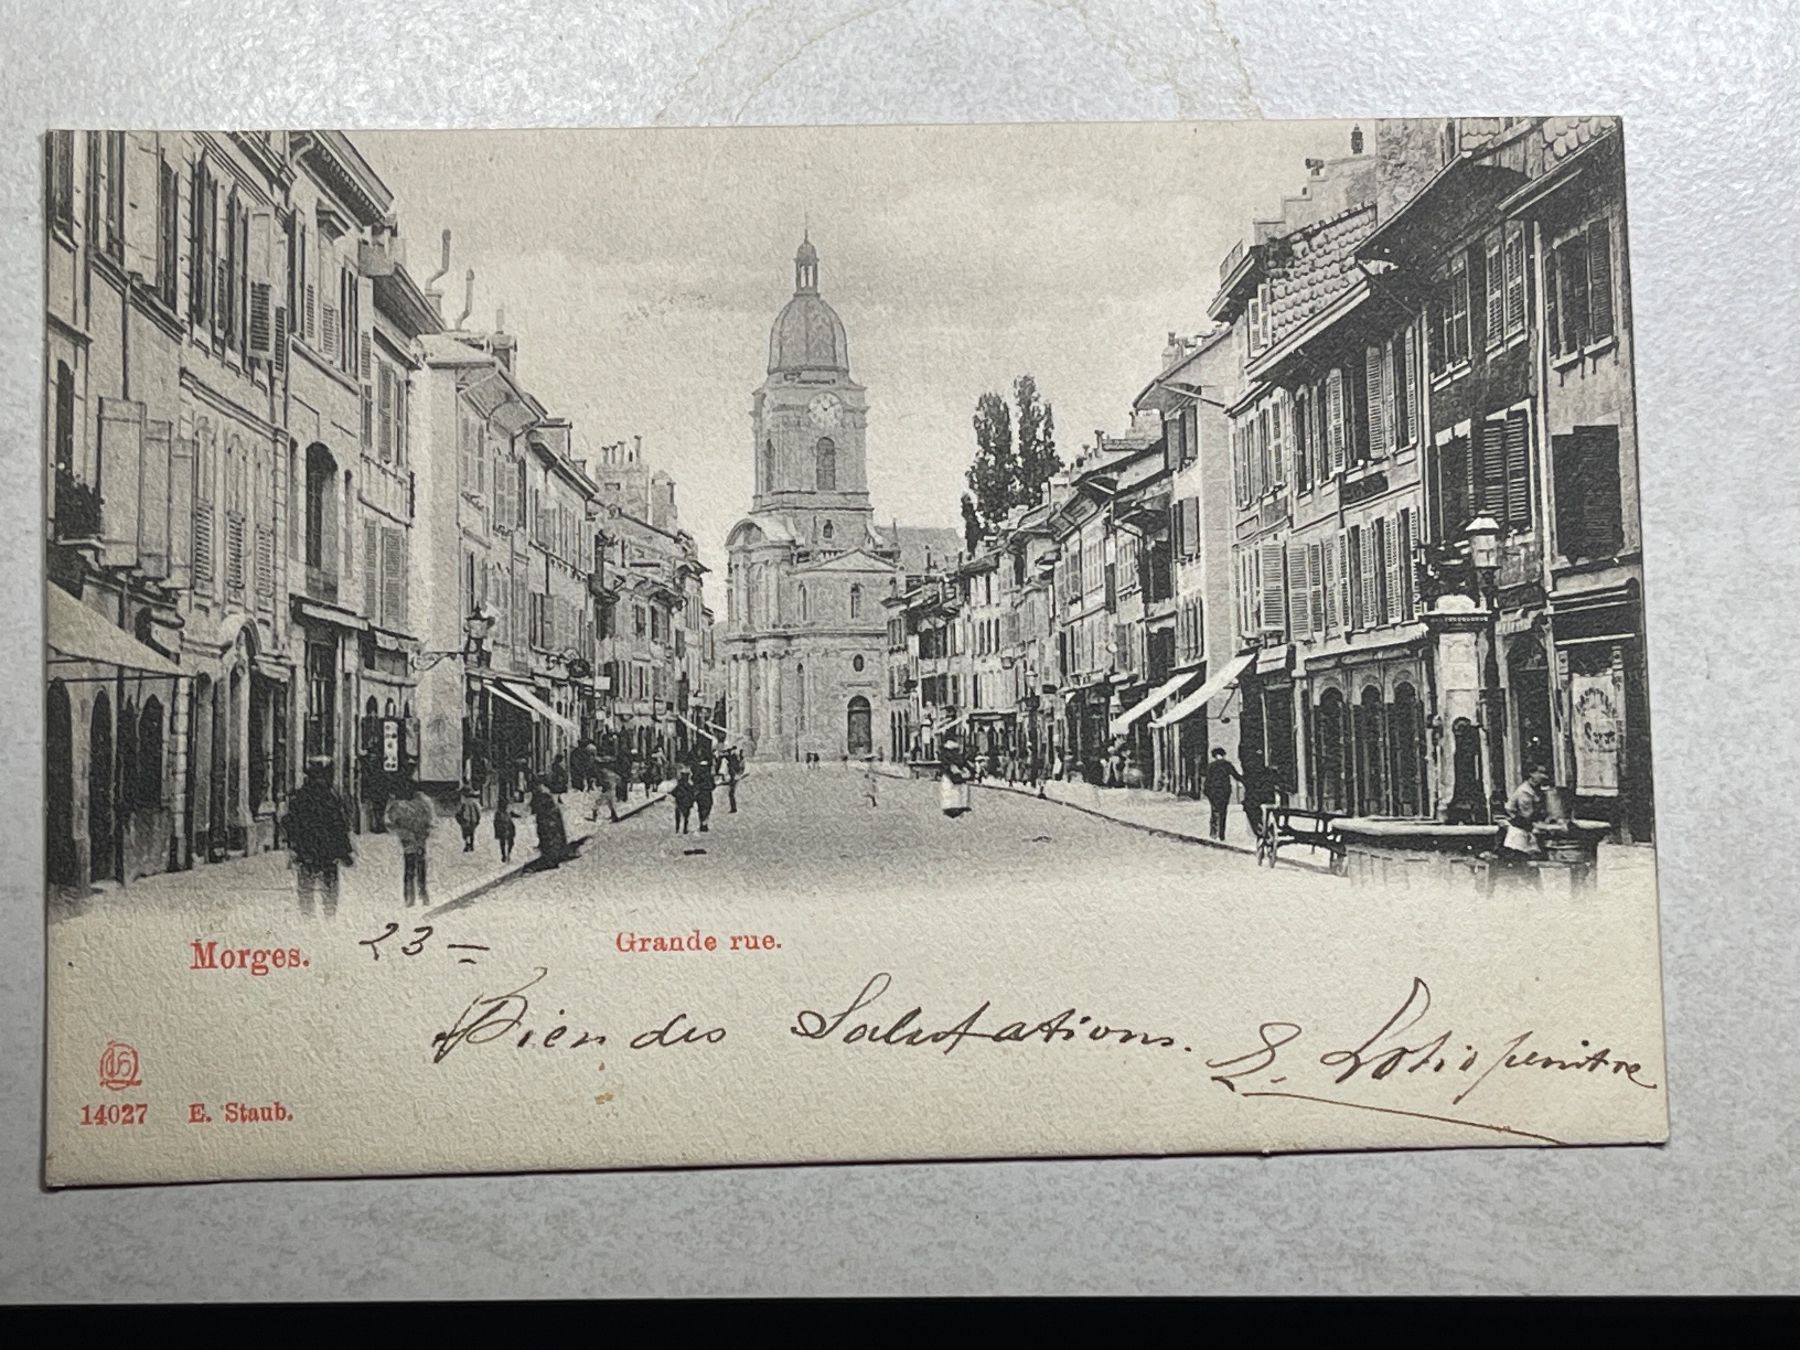 Morges. 23 – Grande rue.
Bien des Salutations.
14027 E. Staub.